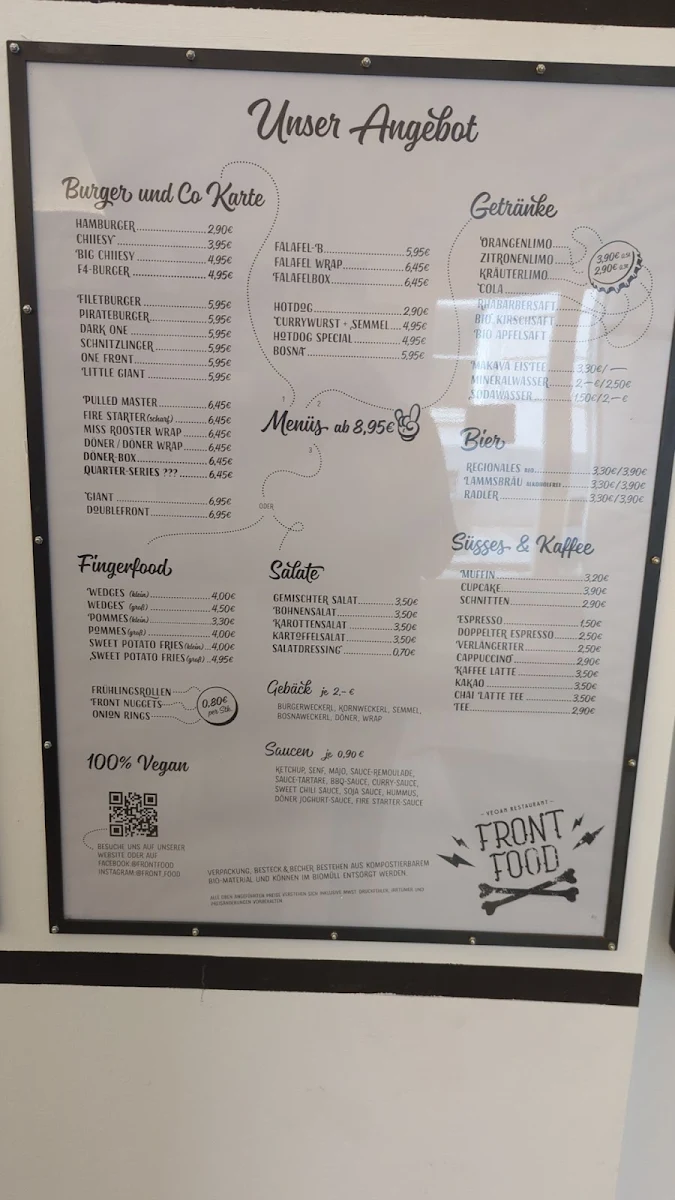 Unser Angebot
Burger und Co Karte
HAMBURGER 2,90€
CHIIESY 3,95€
BIG CHIIESY 4,95€
F4-BURGER 4,95€
FILETBURGER 5,95€
PIRATEBURGER 5,95€
DARK ONE 5,95€
SCHNITZLINGER 5,95€
ONE FRONT 5,95€
LITTLE GIANT 5,95€
PULLED MASTER 6,45€
FIRE STARTER (scharf) 6,45€
MISS ROOSTER WRAP 6,45€
DÖNER / DÖNER WRAP 6,45€
DÖNER-BOX 6,45€
QUARTER-SERIES ??? 6,45€
GIANT 6,95€
DOUBLEFRONT 6,95€
FALAFEL-B 5,95€
FALAFEL WRAP 6,45€
FALAFELBOX 6,45€
HOTDOG 2,90€
CURRYWURST + SEMMEL 4,95€
HOTDOG SPECIAL 4,95€
BOSNA 5,95€
1
2
Menüs ab 8,95€
3
ODER
Fingerfood
WEDGES (klein) 4,00€
WEDGES (groß) 4,50€
POMMES (klein) 3,30€
POMMES (groß) 4,00€
SWEET POTATO FRIES (klein) 4,00€
SWEET POTATO FRIES (groß) 4,95€
FRÜHLINGSROLLEN
FRONT NUGGETS
ONION RINGS
0,80€
per Stk.
Salate
GEMISCHTER SALAT 3,50€
BOHNENSALAT 3,50€
KAROTTENSALAT 3,50€
KARTOFFELSALAT 3,50€
SALATDRESSING 0,70€
Gebäck je 2,- €
BURGERWECKERL, KORNWECKERL, SEMMEL,
BOSNAWECKERL, DÖNER, WRAP
Saucen je 0,90 €
KETCHUP, SENF, MAJO, SAUCE-REMOULADE,
SAUCE-TARTARE, BBQ-SAUCE, CURRY-SAUCE,
SWEET CHILI SAUCE, SOJA SAUCE, HUMMUS,
DÖNER JOGHURT-SAUCE, FIRE STARTER-SAUCE
Getränke
ORANGENLIMO
ZITRONENLIMO
KRÄUTERLIMO
COLA
RHABARBERSAFT
BIO KIRSCHSAFT
BIO APFELSAFT
3,90€
2,90€
MAKAVA EISTEE 3,30€/ —
MINERALWASSER 2,—€/2,50€
SODAWASSER 1,50€/2,—€
Bier
REGIONALES BIO 3,30€/3,90€
LAMMSBRÄU ALKOHOLFREI 3,30€/3,90€
RADLER 3,30€/3,90€
Süsses & Kaffee
MUFFIN 3,20€
CUPCAKE 3,90€
SCHNITTEN 2,90€
ESPRESSO 1,50€
DOPPELTER ESPRESSO 2,50€
VERLÄNGERTER 2,50€
CAPPUCCINO 2,90€
KAFFEE LATTE 3,50€
KAKAO 3,50€
CHAI LATTE TEE 3,50€
TEE 2,90€
100% Vegan
BESUCHE UNS AUF UNSERER
WEBSITE ODER AUF
FACEBOOK:@FRONTFOOD
INSTAGRAM:@FRONT_FOOD
VERPACKUNG, BESTECK & BECHER BESTEHEN AUS KOMPOSTIERBAREM
BIO-MATERIAL UND KÖNNEN IM BIOMÜLL ENTSORGT WERDEN.
ALLE OBEN ANGEFÜHRTEN PREISE VERSTEHEN SICH INKLUSIVE MWST. DRUCKFEHLER, IRRTÜMER UND
PREISÄNDERUNGEN VORBEHALTEN.
- VEGAN RESTAURANT -
FRONT
FOOD